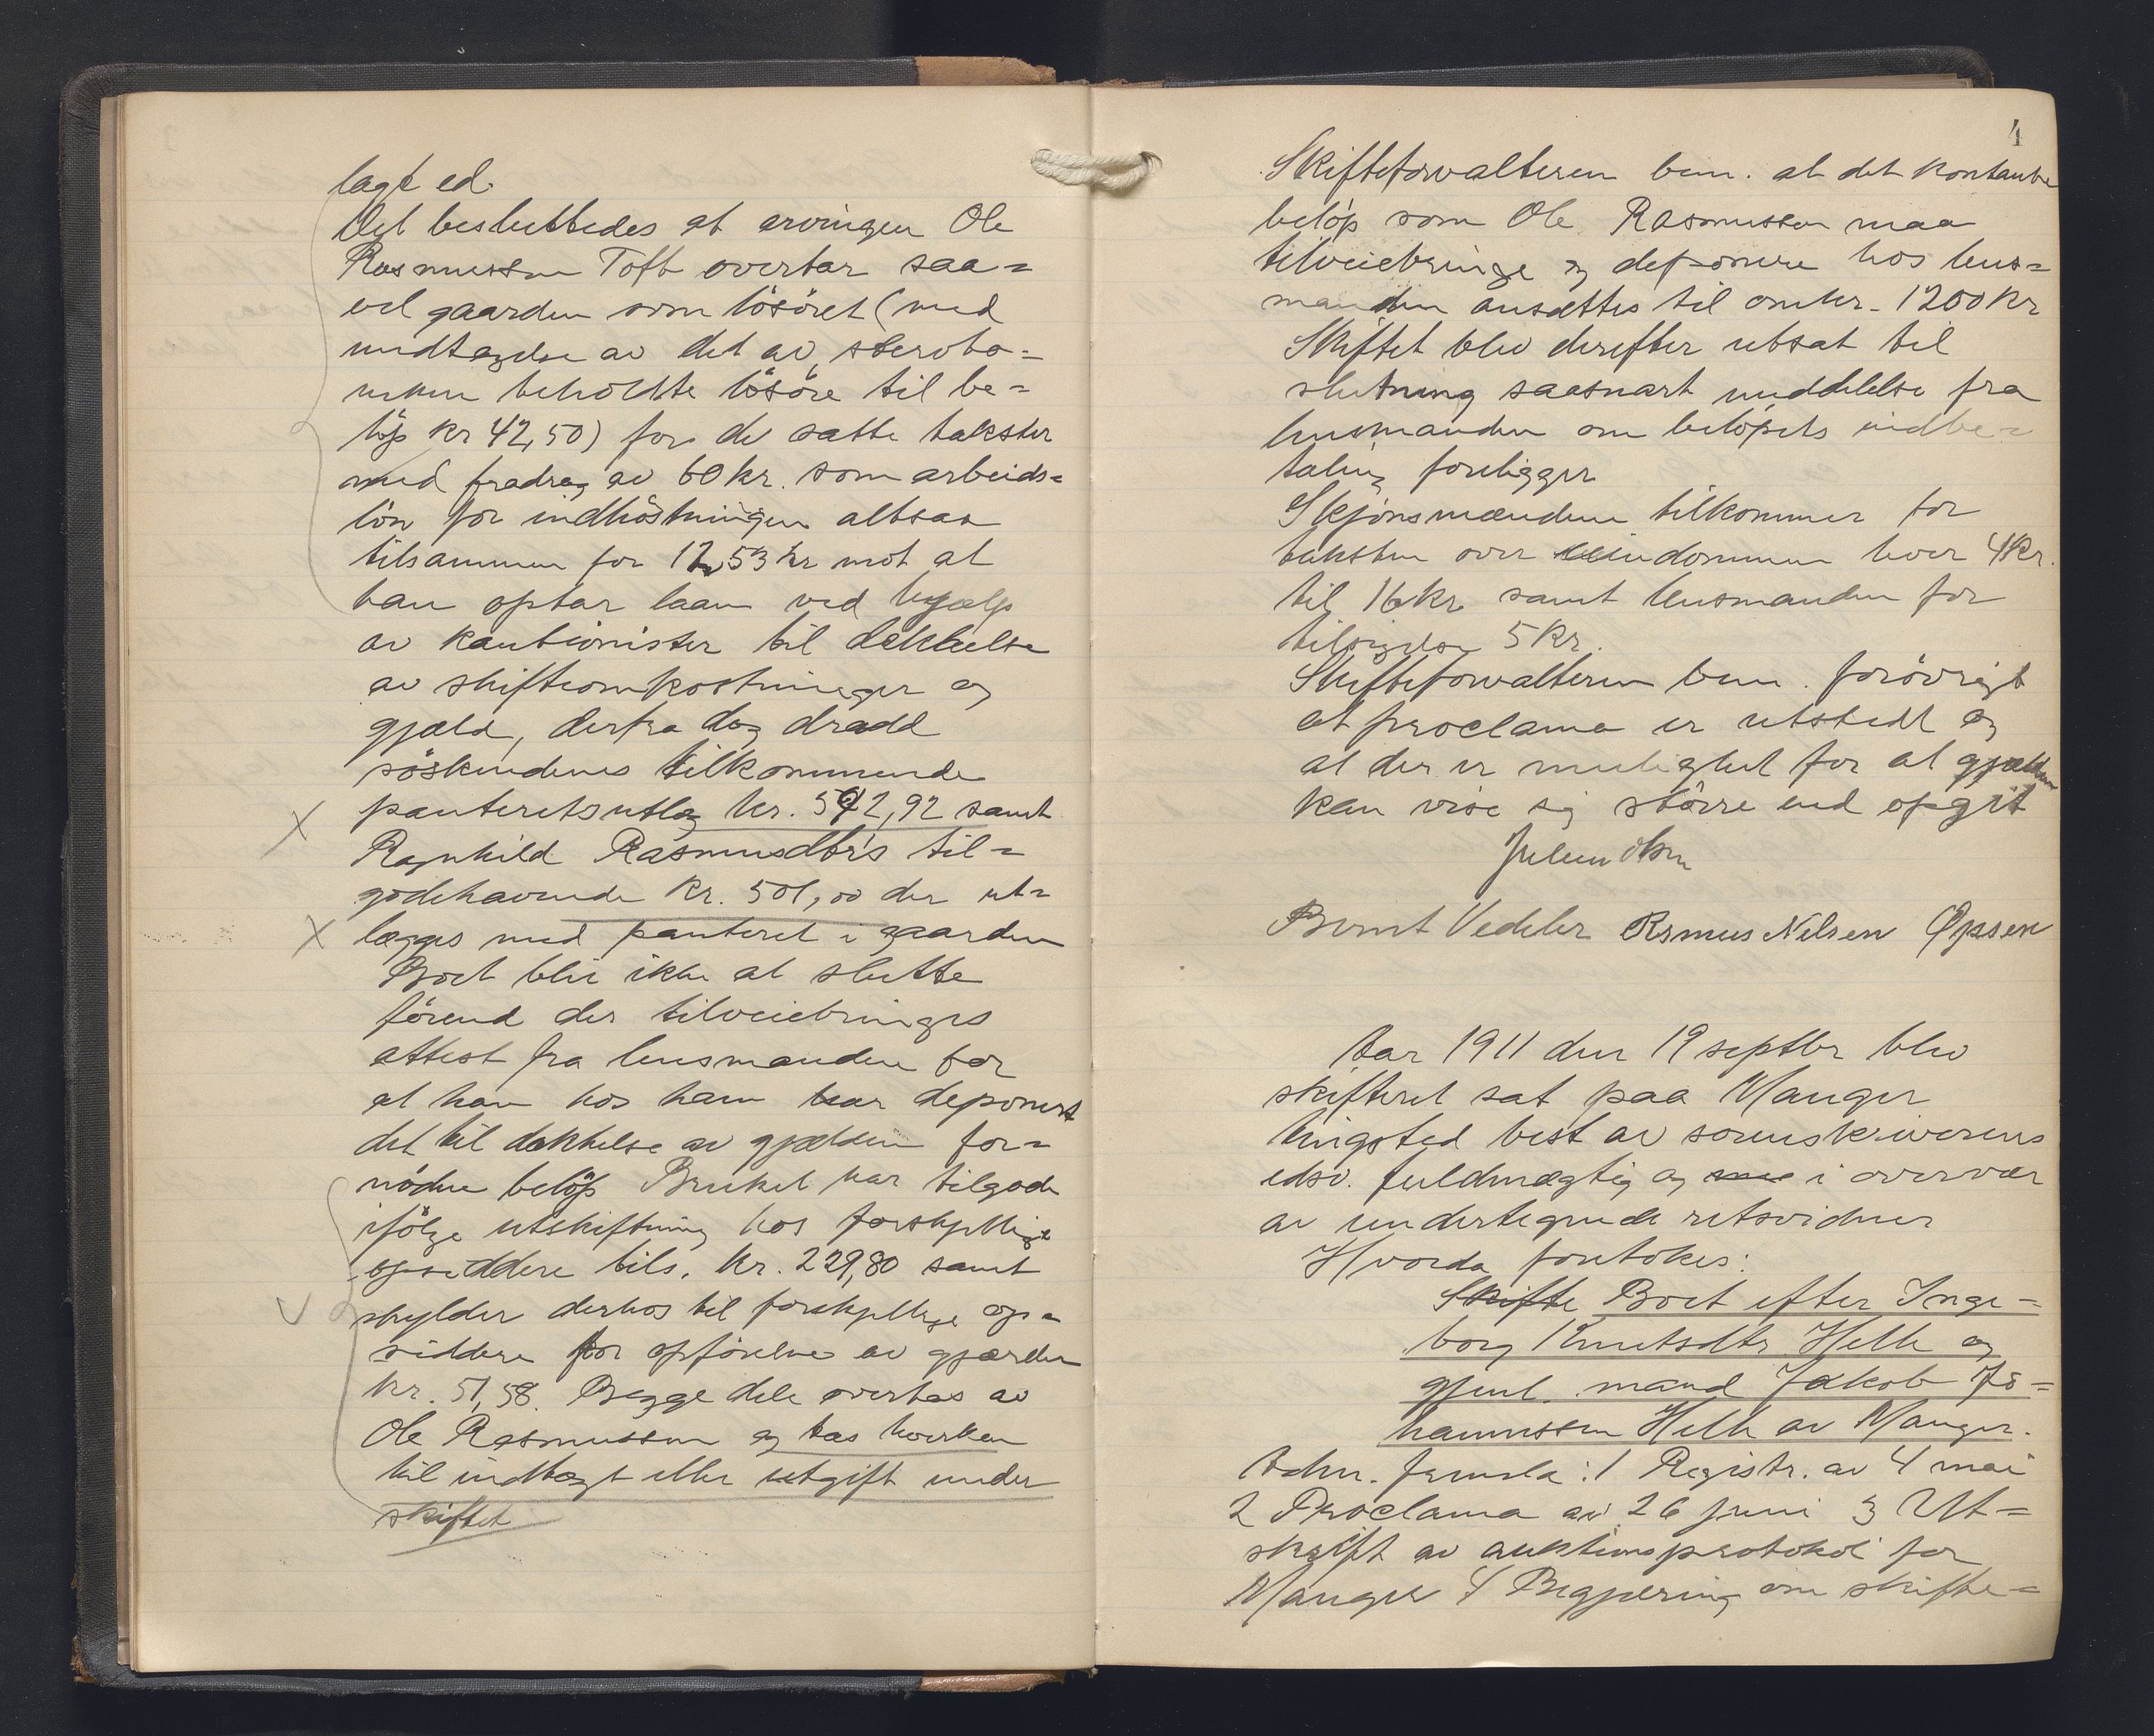 lagt ed.
Det besluttedes at arvingen Ole
Rasmussen Toft overtar saa=
vel gaarden som lösöret (med
undtagelse av det av sterbo=
enken beholdte lösöre til be=
löp kr 42,50) for de satte takster
med fradrag av 60 kr. som arbeids=
lön for indhöstningen altsaa
tilsammen for 1253 kr mot at
han optar laan ved hjælp
av kautionister til dækkelse
av skifteomkostninger og
gjæld, derfra dog dradd
söskendenes tilkommende
panteretsutlæg kr. 542,92 samt
Ragnhild Rasmusdtrs til=
godehavende kr. 501,00 der ut=
lægges med panteret i gaarden
Boet blir ikke at slutte
förend der tilveiebringes
attest fra lensmanden for
at han hos ham har deponert
det til dækkelse av gjælden for=
nödne belöp Bruket har tilgode
ifölge utskiftning hos forskjellige
opsiddere tils. kr. 229,80 samt
skylder derhos til forskjellige op=
siddere for opförelse av gjærder
kr. 51,58. Begge dele overtas av
Ole Rasmussen og tas hverken
til indtægt eller utgift under
skiftet
4
Skifteforvalteren bem. at det kontante
belöp som Ole Rasmussen maa
tilveiebringe og deponere hos lens=
manden ansættes til omkr. 1200 kr
Skiftet blev derefter utsat til
slutning saasnart meddelelse fra
lensmanden om belöpets indbe=
taling foreligger
Skjönsmændene tilkommer for
taksten over eiendommen hver 4 kr.
til 16 kr samt lensmanden for
tilsigelse 5 kr.
Skifteforvalteren bem. forövrigt
at proclama er utstedt og
at der er mulighet for at gjælden
kan vise sig större end opgit
Bernt Vedeler Rsmus Nilsen Opsen
Aar 1911 den 19 septbr blev
skifteret sat paa Manger
tingsted best av sorenskriverens
edsv. fuldmægtig og i overvær
av undertegnede retsvidner
Hvorda foretokes:
Skifte Boet efter Inge=
borg Knutsdtr. Helle og
gjenl. mand Jakob Jo=
hannessen Helle av Manger.
Adm. freml: 1 Registr. av 4 mai
2 Proclama av 26 juni 3 Ut=
skrift av auktionsprotokol for
Manger 4 Begjæring om skifte=